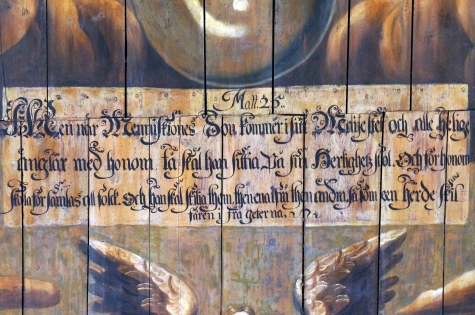 Matt. 25.
Men när Menniskiones Son kommer i sitt Maijestet och alle helige
änglar med honom, tå skal han sittia på sin Herlighetz stol. Och för honom
skola församblas all folck. Och han skal skilia them, then ena ifrå then andra, så som een herde skil
fåren ifrå geterna.